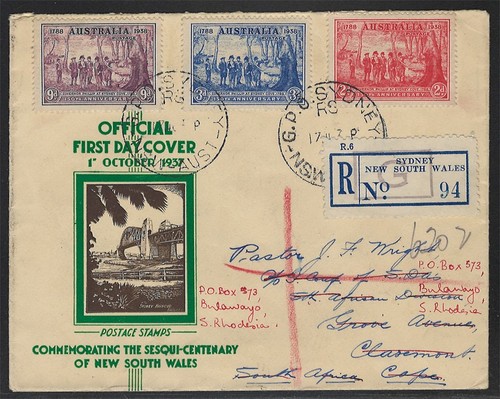 1788 AUSTRALIA 1938
POSTAGE
9d 9d
150TH ANNIVERSARY
1788 AUSTRALIA 1938
POSTAGE
3d 3d
150TH ANNIVERSARY
1788 AUSTRALIA 1938
POSTAGE
2d 2d
150TH ANNIVERSARY
SYDNEY
G.P.O.
OFFICIAL
FIRST DAY COVER
1ST OCTOBER 1937
R.6
R
SYDNEY
NEW SOUTH WALES
No. 94
Pastor J. F. Wright
P.O. Box 573,
Bulawayo,
S. Rhodesia.
P.O. Box 573,
Bulawayo,
S. Rhodesia.
Grove Avenue,
Claremont.
South Africa Cape.
SYDNEY HARBOUR
POSTAGE STAMPS
COMMEMORATING THE SESQUI-CENTENARY
OF NEW SOUTH WALES